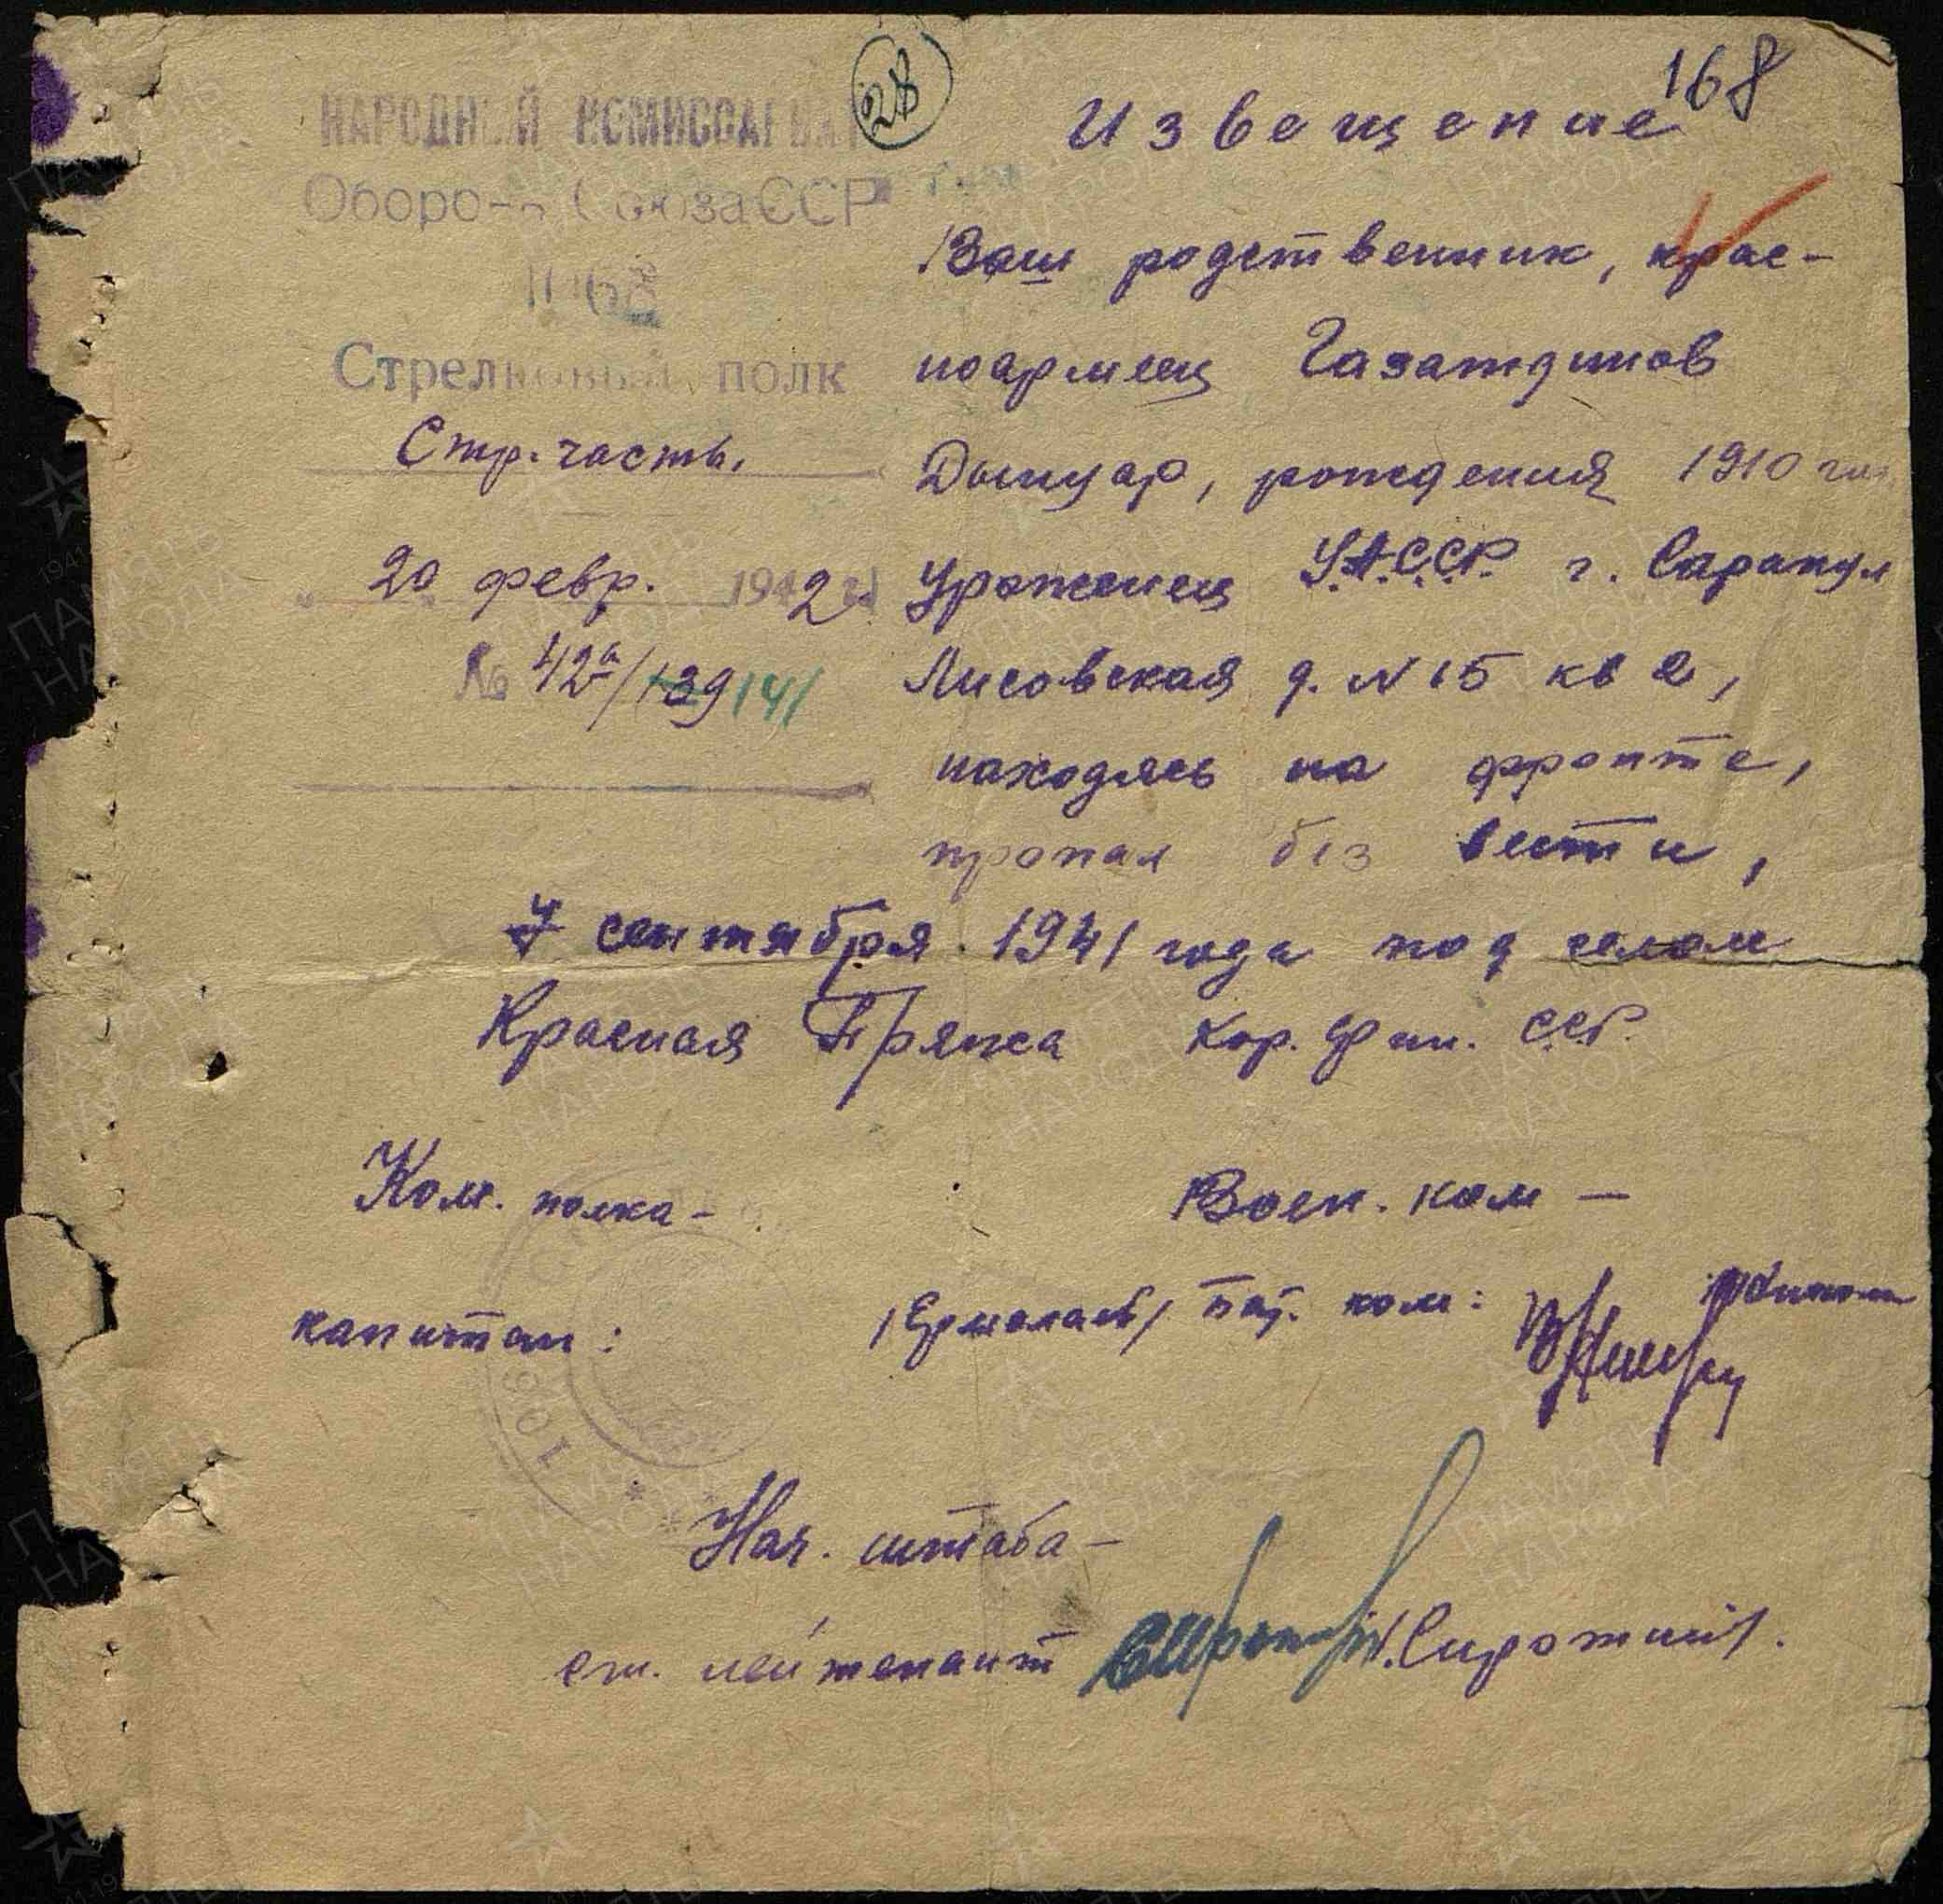 28
168
НАРОДНЫЙ КОМИССАРИАТ
Обороны Союза ССР
1068
Стрелковый полк
Стр. часть.
20 февр. 1942 г.
№ 42а/139 141
Извещение
Ваш родственник, крас-
ноармеец Газатдинов
рождения 1910
Уроженец У.А.С.С.Р. г. Сарапул
Лисовская д. N 15 кв 2,
находясь на фронте,
пропал без вести,
7 сентября 1941 года под селом
Красная Пряжа Кар. Фин. ССР.
Ком. полка –
Воен. ком –
капитан:
/Ермолаев/ Бат. ком:
Нач. штаба –
ст. лейтенант /Сиротин/.